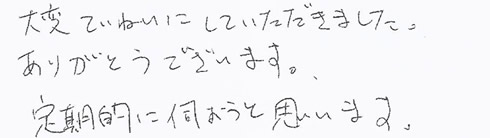 大変ていねいにしていただきました。
ありがとうございます。
定期的に伺おうと思いいます。